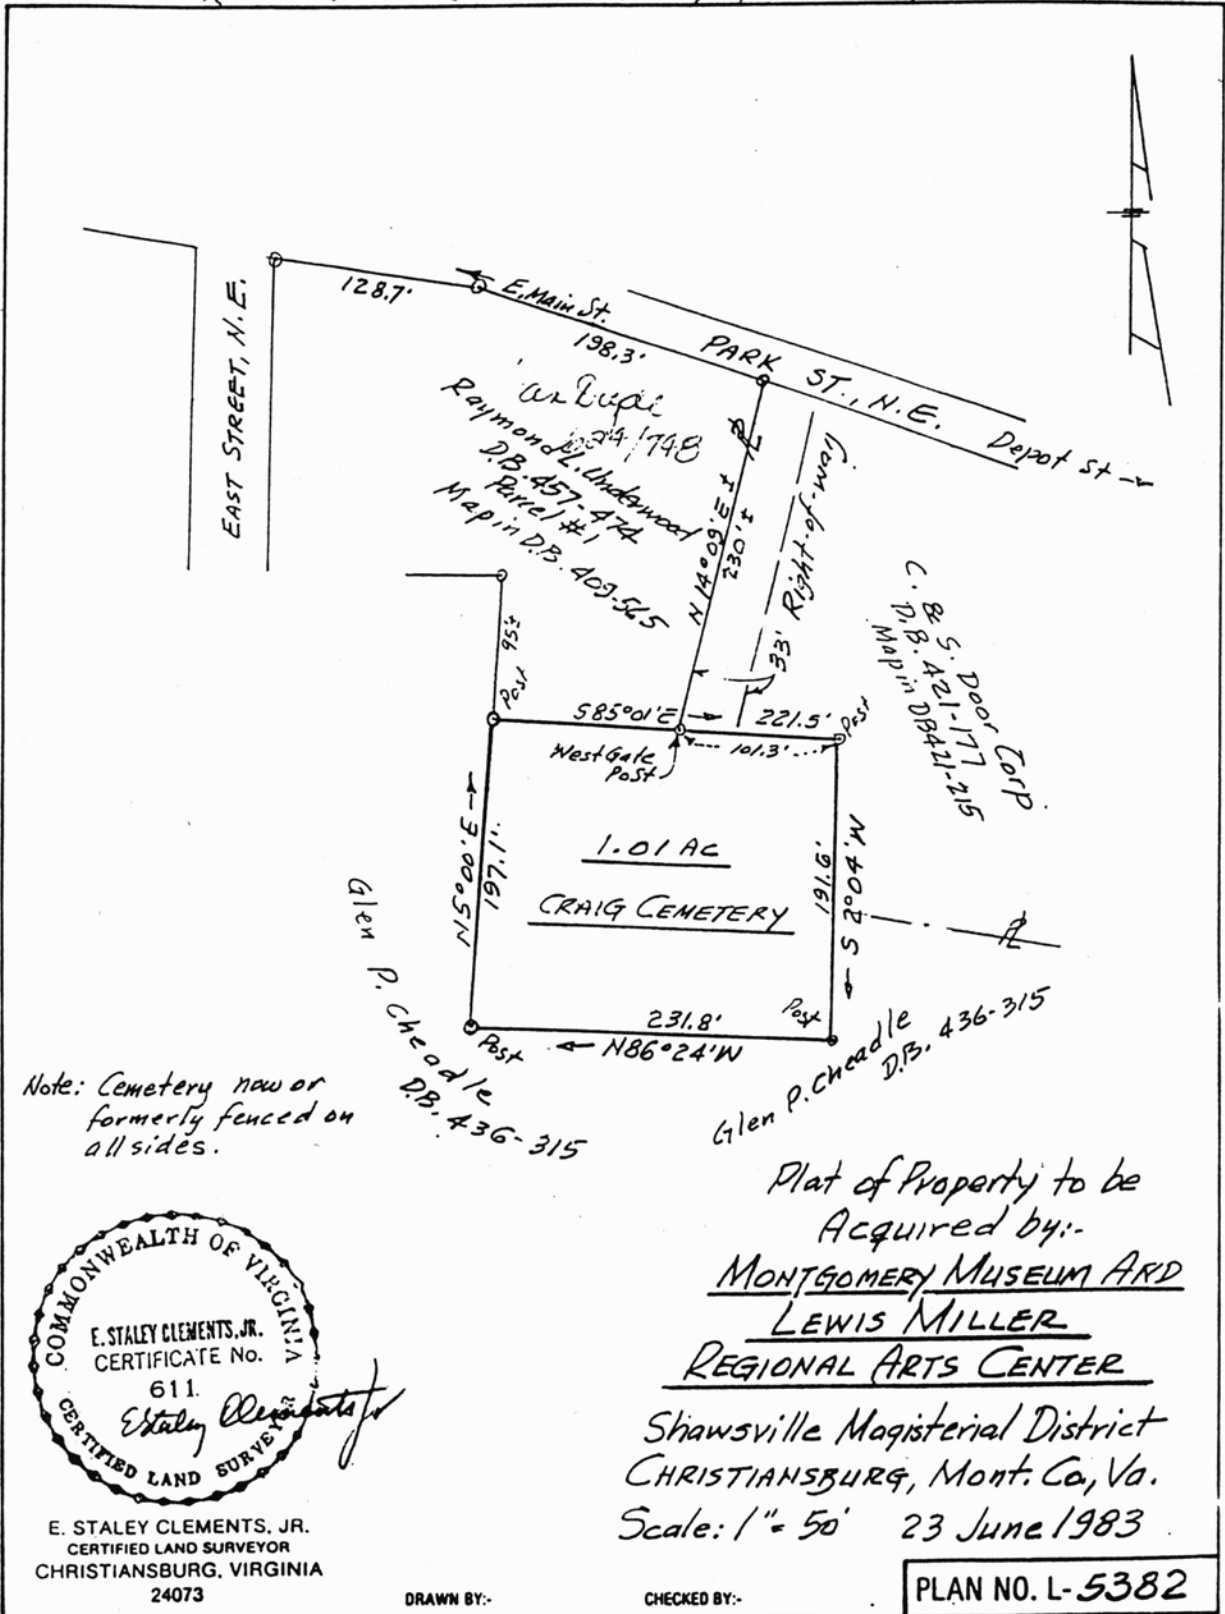 128.7'
E. Main St.
198.3'
PARK ST., N.E.
Depot St
EAST STREET, N.E.
624/748
Raymond L. Underwood
D.B. 457-474
Parcel #1
Map in D.B. 409-565
N 14°09' E ±
230' ±
PL
33' Right-of-way
C. & S. Door Corp.
D.B. 421-177
Map in DB421-215
95±
Post
S85°01'E
221.5'
Post
101.3'
West Gate
Post
N5°00'E
197.1'
1.01 AC
CRAIG CEMETERY
191.6'
S 2°04' W
PL
231.8'
N86°24'W
Post
Post
Glen P. Cheadle
D.B. 436-315
Glen P. Cheadle
D.B. 436-315
Note: Cemetery now or
formerly fenced on
all sides.
Plat of Property to be
Acquired by:-
MONTGOMERY MUSEUM AND
LEWIS MILLER
REGIONAL ARTS CENTER
Shawsville Magisterial District
CHRISTIANSBURG, Mont. Co., Va.
Scale: 1" = 50' 23 June 1983
COMMONWEALTH OF VIRGINIA
E. STALEY CLEMENTS, JR.
CERTIFICATE No.
611.
E Staley Clements Jr
CERTIFIED LAND SURVEYOR
E. STALEY CLEMENTS, JR.
CERTIFIED LAND SURVEYOR
CHRISTIANSBURG, VIRGINIA
24073
DRAWN BY:-
CHECKED BY:-
PLAN NO. L-5382